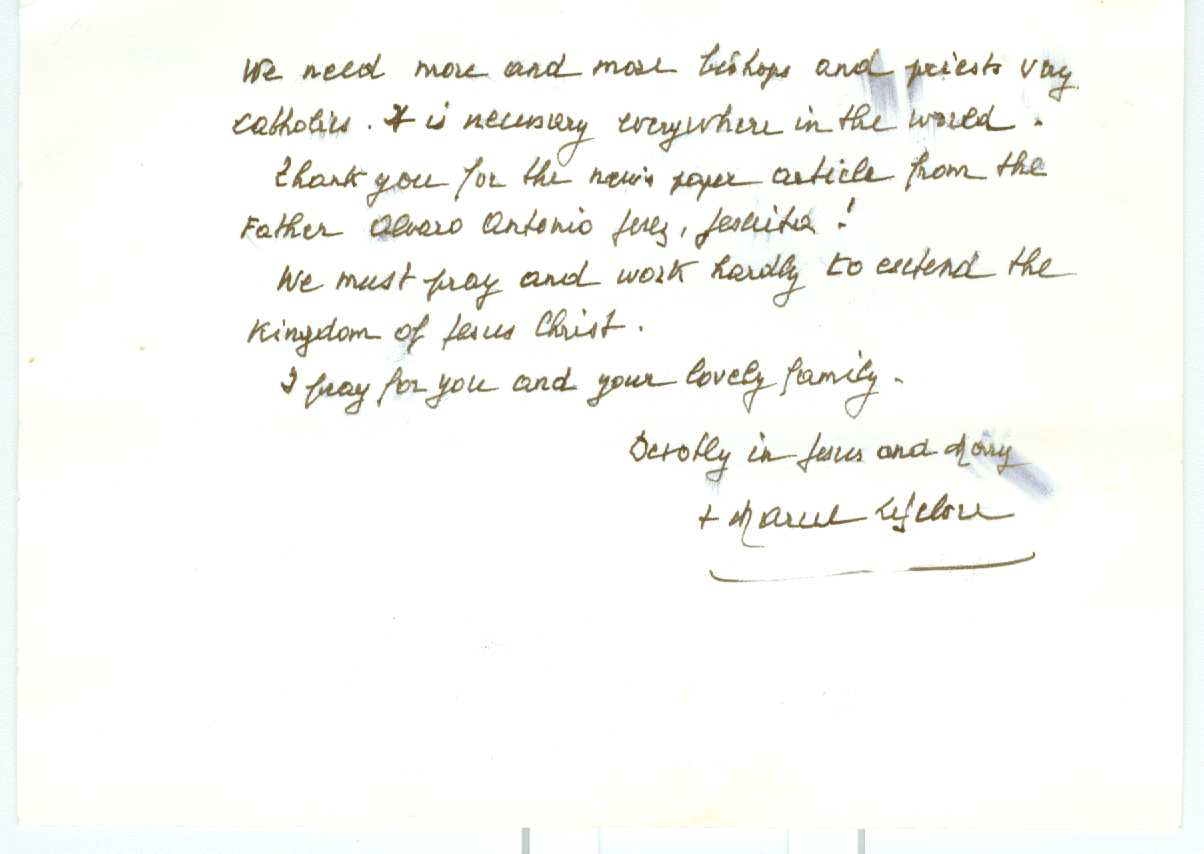 We need more and more bishops and priests very
catholics. It is necessary everywhere in the world.
Thank you for the new's paper article from the
Father Alvaro Antonio Jerez, Jesuita !
We must pray and work hardly to extend the
Kingdom of Jesus Christ.
I pray for you and your lovely family.
in Jesus and Mary
+ Marcel Lefebvre